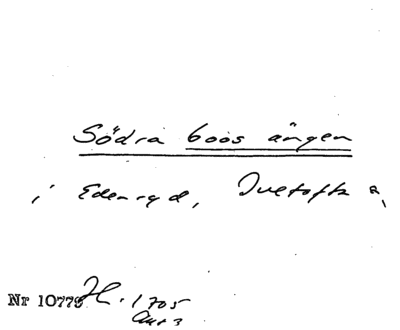 Södra boös ängen
i Edenryd, Ivetofta
Nr 10779 H. 1705